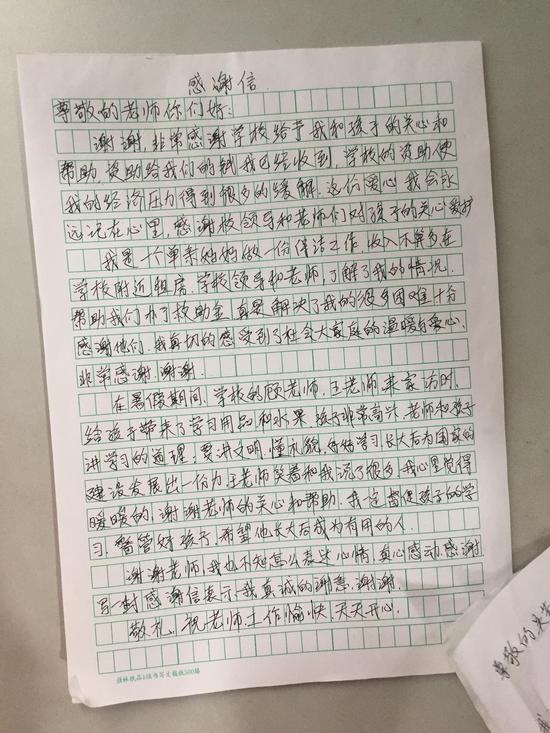 感谢信
尊敬的老师你们好：
谢谢，非常感谢学校给予我和孩子的关心和
帮助，资助给我们的钱我已经收到，学校的资助使
我的经济压力得到很多的缓解，这份爱心我会永
远记在心里，感谢校领导和老师们对孩子的关心爱护
我是一个单亲妈妈做一份保洁工作，收入不算多在
学校附近租房，学校领导和老师，了解了我的情况，
帮助我们办了救助金，真是解决了我的很多困难十分
感谢他们，我真切的感受到了社会大家庭的温暖与爱心，
非常感谢，谢谢。
在暑假期间，学校的顾老师，王老师来家访时，
给孩子带来了学习用品和水果，孩子非常高兴，老师和孩子
讲学习的道理，要讲文明，懂礼貌，好好学习，长大后为国家的
建设发展出一份力，王老师笑着和我说了很多，我心里觉得
暖暖的，谢谢老师的关心和帮助，我一定督促孩子的学
习，管好孩子，希望他长大后成为有用的人。
谢谢老师，我也不知怎么表达心情，真心感动，感谢
写一封感谢信表示我真诚的谢意，谢谢。
敬礼，祝老师工作愉快，天天开心。
尊敬的
我